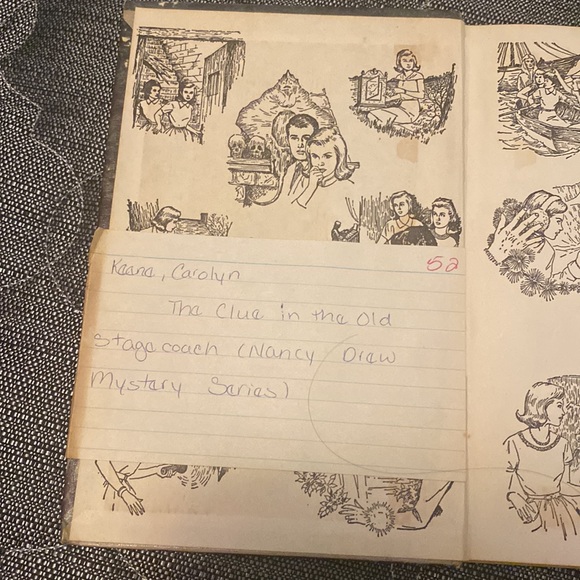 52
Keene, Carolyn
The Clue in the Old
Stagecoach (Nancy Drew
Mystery Series)